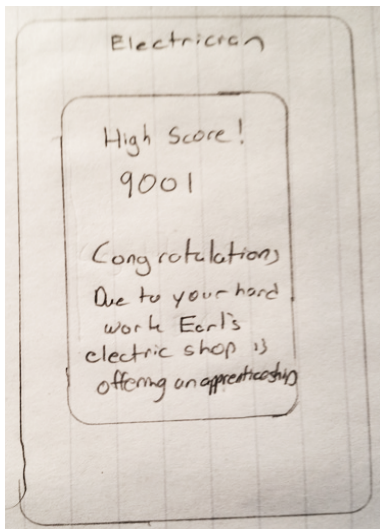 Electrician
High Score!
9001
Congratulations
Due to your hard
work Earl's
electric shop is
offering an apprenticeship